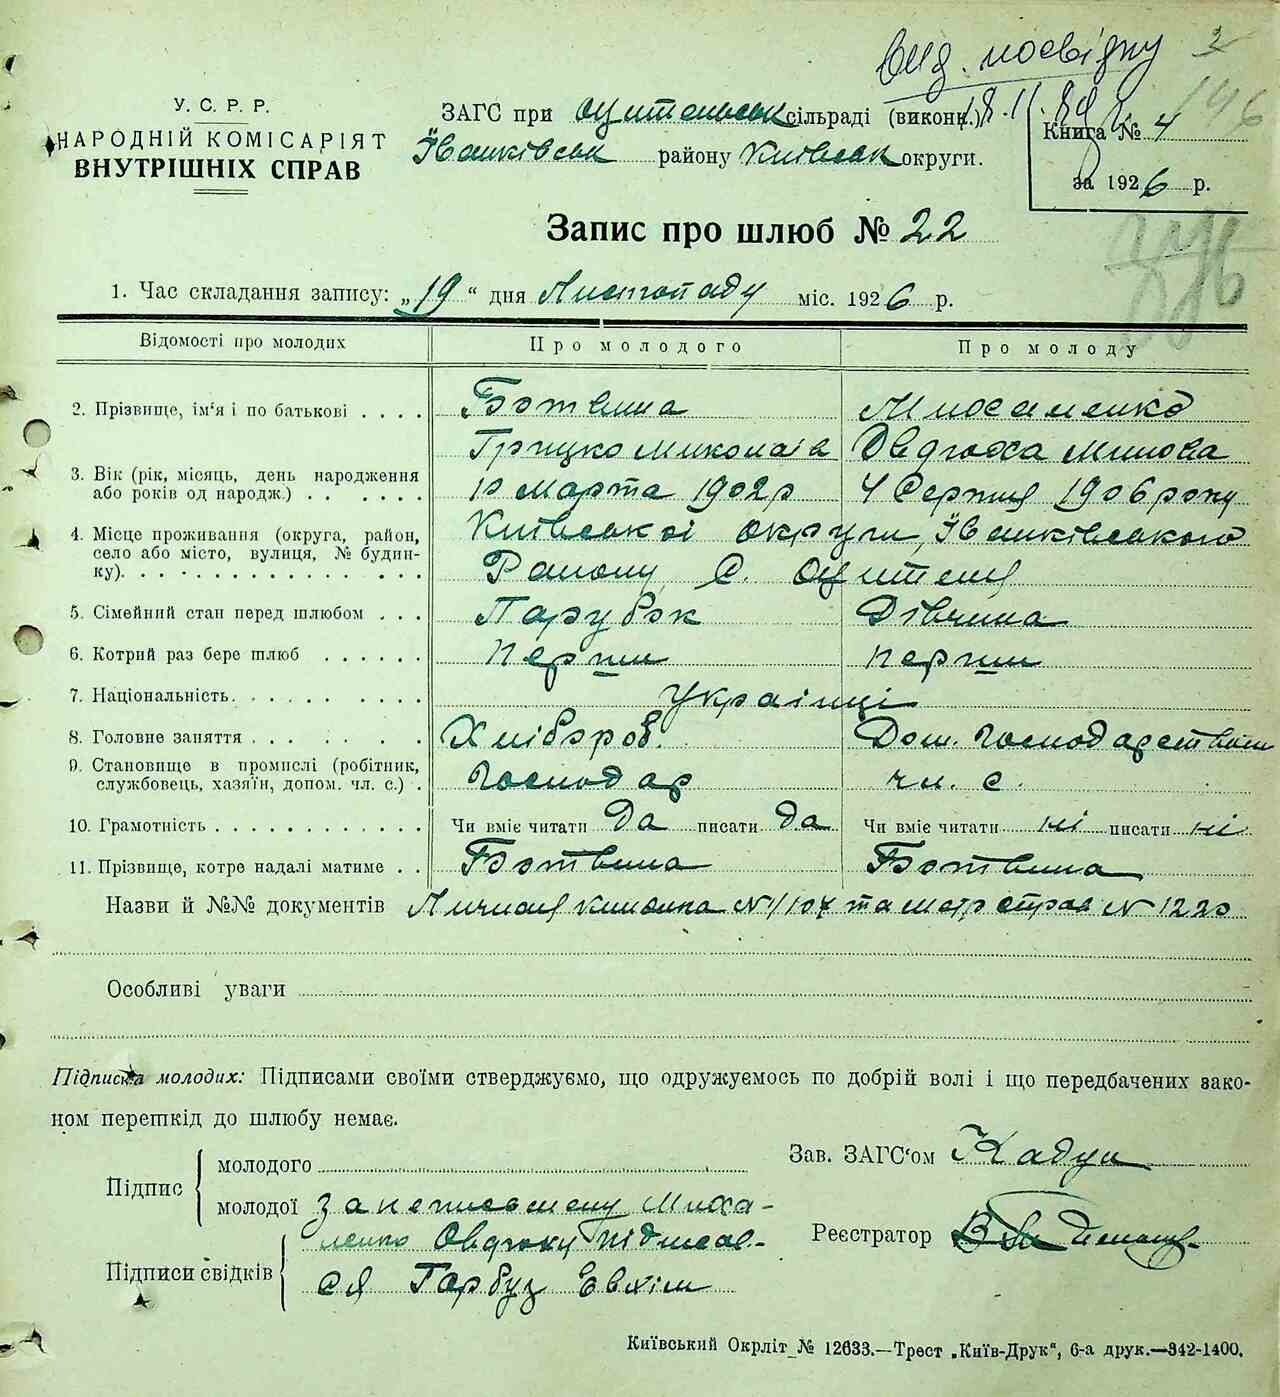 Вид. посвідку
У. С. Р. Р.
НАРОДНІЙ КОМІСАРІЯТ
ВНУТРІШНІХ СПРАВ
ЗАГС при Оцительськ сільраді (виконк.)
Іванківськ району Київськ округи.
Книга № 4
за 1926 р.
Запис про шлюб № 22
1. Час складання запису: „19“ дня Листопаду міс. 1926 р.
Відомості про молодих Про молодого Про молоду
2. Прізвище, ім'я і по батькові . . . . Ботвина Михаленко
Грицко Миколаів Овдюха Милова
3. Вік (рік, місяць, день народження
або років од народж.) . . . . . . . 10 Марта 1902 р 4 Серпня 1906 року
4. Місце проживання (округа, район,
село або місто, вулиця, № будин-
ку). Київської округи, Іванківського
Району С. Оцителя
5. Сімейний стан перед шлюбом . . . Парубок Дівчина
6. Котрий раз бере шлюб . . . . . . Перший перший
7. Національність. . . . . . . . . . Українці
8. Головне заняття . . . . . . . . Хлібороб. Дом. Господарством
9. Становище в промислі (робітник,
службовець, хазяїн, допом. чл. с.) . Господар чл. с.
10. Грамотність . . . . . . . . . . . . Чи вміє читати Да писати да Чи вміє читати ні писати ні
11. Прізвище, котре надалі матиме . . Ботвина Ботвина
Назви й №№ документів Личная книжка № 1/107 та метр страв № 1220
Особливі уваги
Підписка молодих: Підписами своїми стверджуємо, що одружуємось по добрій волі і що передбачених зако-
ном перешкід до шлюбу немає.
Підпис
молодого
молодої За неписьмену Миха-
ленко Овдюху підписав-
Підписи свідків
ся Гарбуз Евхім
Зав. ЗАГС'ом
Реєстратор
Київський Окрліт № 12633.—Трест „Київ-Друк“, 6-а друк.—342-1400.